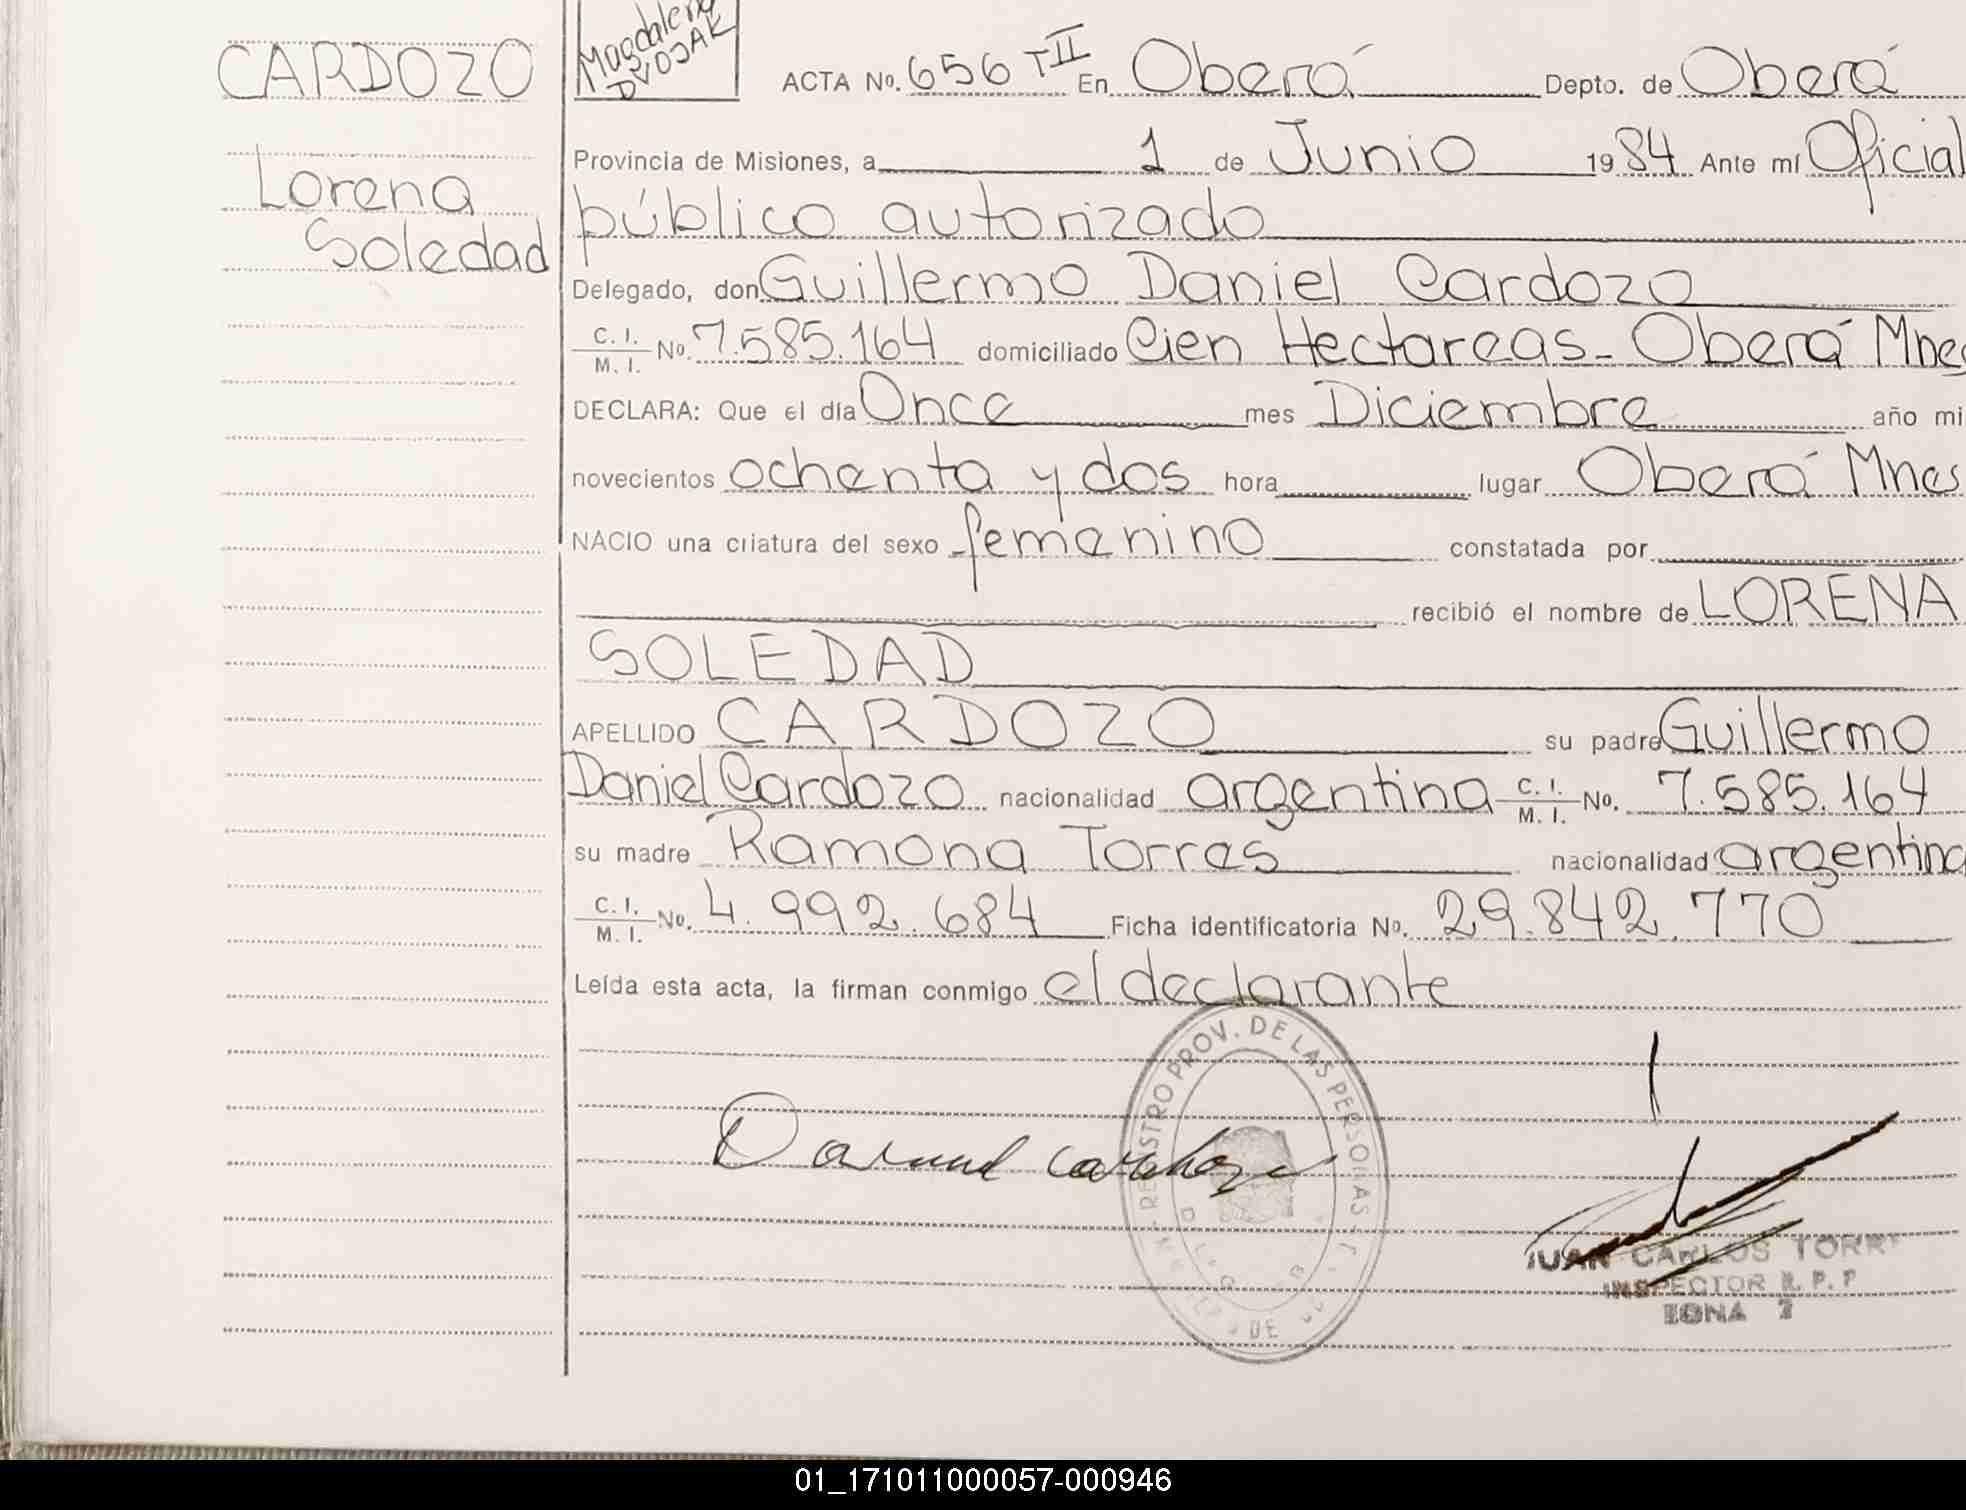 CARDOZO
Lorena
Soledad
Magdalena
DVOJAK
ACTA No. 656 TII En Oberá Depto. de Oberá
Provincia de Misiones, a 1 de Junio 1984 Ante mí Oficial
público autorizado
Delegado, don Guillermo Daniel Cardozo
C. I. / M. I. No. 7.585.164 domiciliado Cien Hectareas - Oberá Mnes
DECLARA: Que el día Once mes Diciembre año mi
novecientos ochenta y dos hora lugar Oberá Mnes
NACIO una criatura del sexo femenino constatada por
recibió el nombre de LORENA
SOLEDAD
APELLIDO CARDOZO su padre Guillermo
Daniel Cardozo nacionalidad argentina C. I. / M. I. No. 7.585.164
su madre Ramona Torres nacionalidad argentina
C. I. / M. I. No. 4.992.684 Ficha identificatoria No. 29.842.770
Leída esta acta, la firman conmigo el declarante
REGISTRO PROV. DE LAS PERSONAS
Daniel Cardozo
JUAN CARLOS TORR
INSPECTOR R. P. P
ZONA
01_171011000057-000946